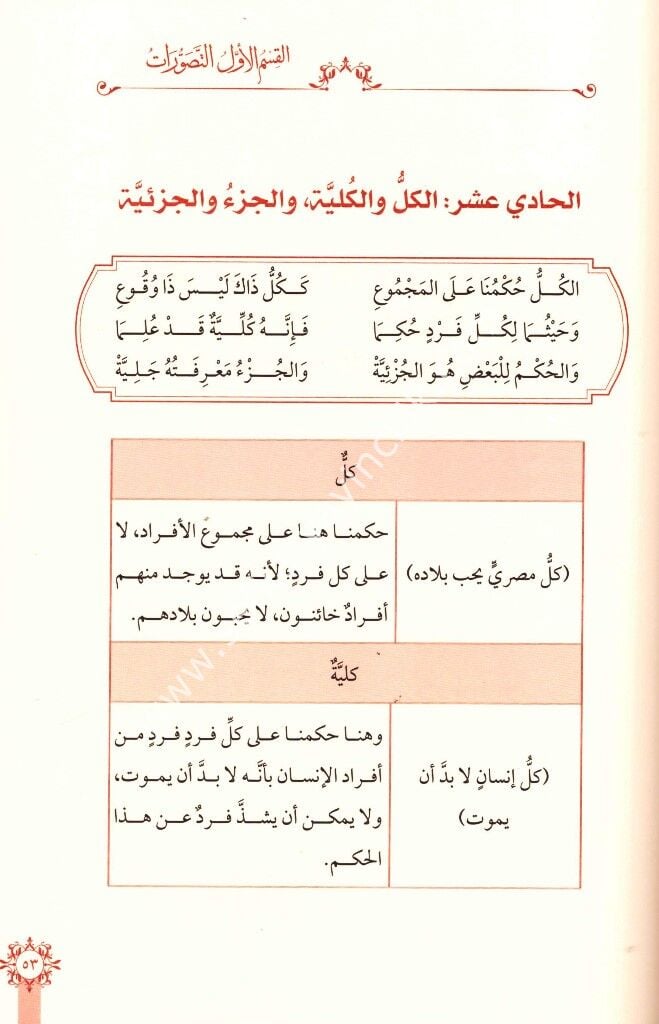 القِسْمُ الأَوَّلُ التَّصَوُّرَاتُ
الحادي عشر: الكلُّ والكُليَّة، والجزءُ والجزئيَّة
الكُلُّ حُكْمُنَا عَلَى المَجْمُوعِ كَكُلُّ ذَاكَ لَيْسَ ذَا وُقُوعِ
وَحَيْثُمَا لِكُلِّ فَرْدٍ حُكِمَا فَإِنَّهُ كُلِّيَّةٌ قَدْ عُلِمَا
وَالحُكْمُ لِلْبَعْضِ هُوَ الجُزْئِيَّةْ وَالجُزْءُ مَعْرِفَتُهُ جَلِيَّةْ
كلٌّ
(كلُّ مصريٍّ يحب بلاده)
حكمنا هنا على مجموع الأفراد، لا
على كل فردٍ؛ لأنه قد يوجد منهم
أفرادٌ خائنون، لا يحبون بلادهم.
كليَّةٌ
(كلُّ إنسانٍ لا بدَّ أن
يموت)
وهنا حكمنا على كلِّ فردٍ فردٍ من
أفراد الإنسان بأنَّه لا بدَّ أن يموت،
ولا يمكن أن يشذَّ فردٌ عن هذا
الحكم.
٥٣